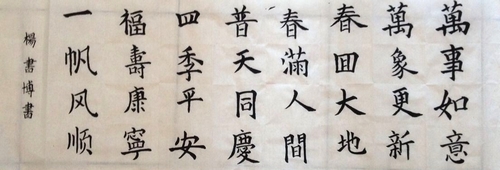 萬事如意
萬象更新
春回大地
春滿人間
普天同慶
四季平安
福壽康寧
一帆风顺
楊書博書